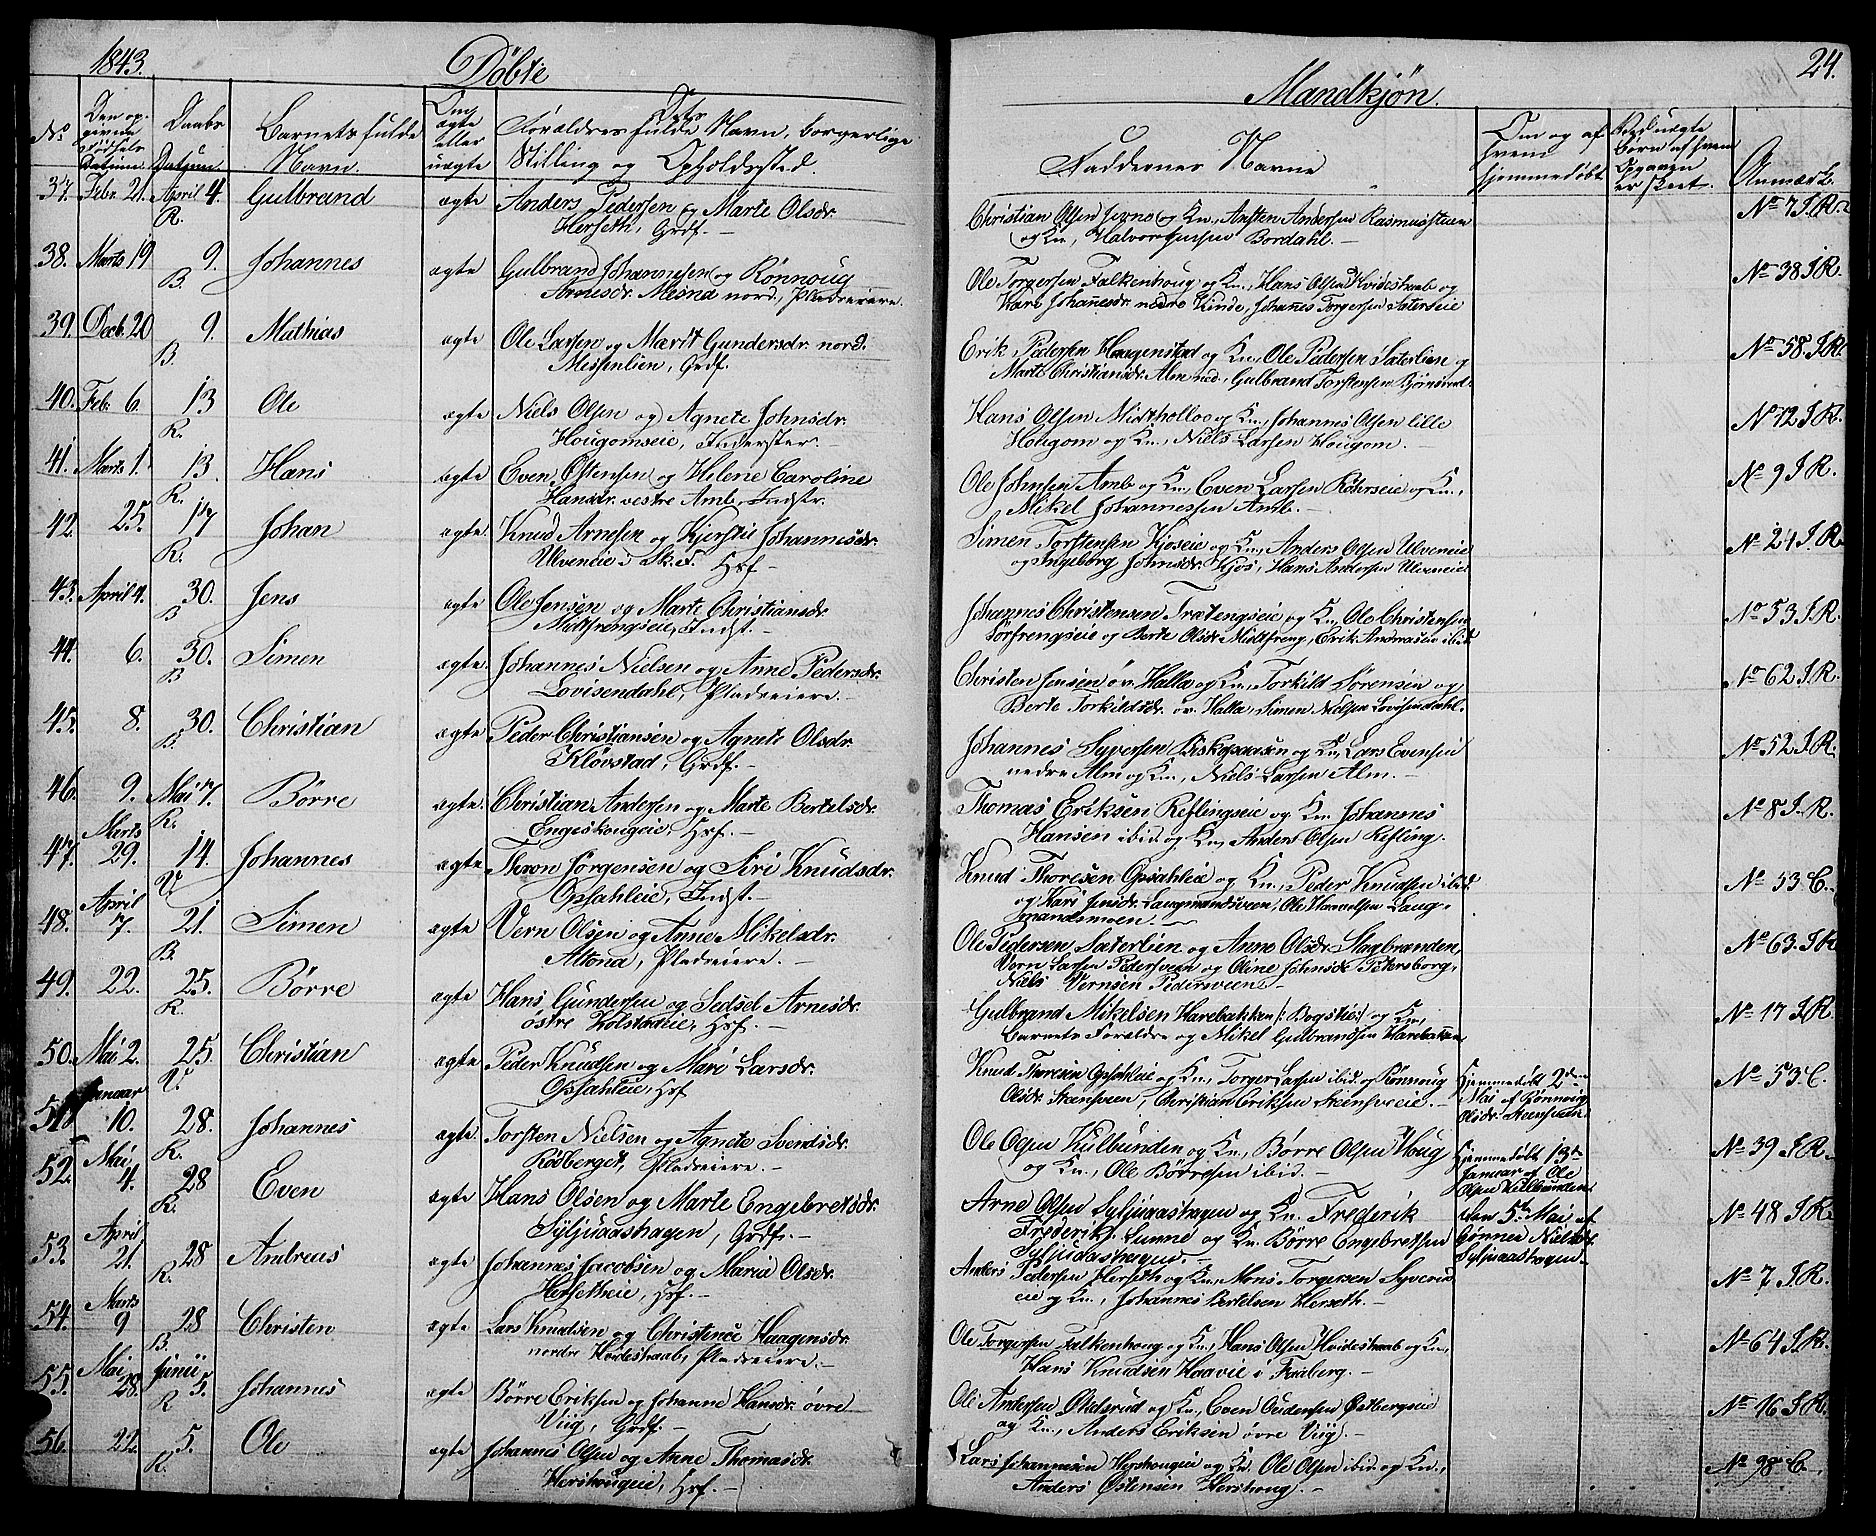 1843. Døbte
Mandkjøn. 24.
No Den opgivne Fødsels Datum Daabs Datum. Barnets fulde Navn. Om ægte eller uægte Forældres fulde Navn, borgerlige Stilling og Opholdssted.
Faddernes Navne Om og af hvem hjemmedøbt Ved uægte Børn af hvem Opgaven er skeet. Anmærk.
37. Febr. 21. April 4. R. Gulbrand ægte Anders Pedersen og Marte Olsdr.
Herseth, Grdf. —
Christian Olsen og Kn., Andersen Rasmusstuen
og Kn., Halvor Bordahl. — No 7 J. R.
38. Marts 19 9. B. Johannes ægte Gulbrand Johannesen og Rønnoug
Arnesdr. Mesna nord., Pladseiere.
Ole Torgersen Falkenhoug og Kn., Hans Olsen Hvideskaab og
Kari Johanesdr. nedre Kinde, Johannes Torgersen Sætereie No 38 J. R.
39. Decb. 20 9. B. Mathias ægte Ole Larsen og Marit Gundersdr. nord.
Messenlien, Grdf.
Erik Pedersen Haugenstad og Kn., Ole Pedersen Sæterlien og
Marte Christiansdr. Alm ned., Gulbrand Torstensen No 58. J. R.
40. Feb. 6. 13 R. Ole ægte Niels Olsen og Agnete Johnsdr.
Hougomseie, Inderster. —
Hans Olsen Midthollo og Kn., Johannes Olsen lille
Hougom og Kn., Niels Larsen Hougom. No 12 J. R.
41. Marts 1. 13 R. Hans ægte Even Østensen og Helene Caroline
Hansdr. vestre Amb, Indstr.
Ole Johnsen Amb og Kn., Even Larsen Røhrseie og Kn.,
Mikel Johannessen Amb. — No 9 J. R.
42. 25. 17 R. Johan ægte Knud Arnesen og Kjersti Johannesdr.
Ulveneie Hsf —
Simen Torstensen Kjoseie og Kn., Anders Olsen Ulveneie
og Ingeborg Johnsdr. Kjos, Hans Andersen Ulveneie No 24 J. R.
43. April 4. 30. B Jens ægte Ole Jensen og Marte Christiansdr.
Midtfrengseie, Indst. —
Johannes Christensen Trætengseie og Kn. Ole Christensen
Sørfrengseie og Berte Olsdr. Midtfreng, Erik Andreasen ibid No 53 J. R.
44. 6. 30. B Simen ægte Johannes Nielsen og Anne Pedersdr.
Lovisendahl, Pladseiere. —
Christen Jensen øv. Halla og Kn., Torkild Sørensen og
Berte Torkildsdr. øv. Halla, Simen Nielsen Lovisendahl. No 62 J. R.
45. 8. 30. B. Christian ægte Peder Christiansen og Agnete Olsdr.
Kløvstad, Grdf. —
Johannes Syversen Biskopaasen og Kn Lars Evensen
nedre Alm og Kn., Niels Larsen Alm. — No 52 J. R.
46. 9. Mai 7. R. Børre ægte. Christian Andersen og Marte Bertelsdr.
Engeskougeie, Hsf. —
Thomas Eriksen Reflingseie og Kn Johannes
Hansen ibid. og Kn, Anders Olsen Refling. No 8 J. R.
47. Marts 29. 14. V. Johannes ægte Thron Jørgensen og Siri Knudsdr.
Opsahleie, Indst. —
Knud Thoresen Opsahleie og Kn., Peder Knudsen ibid
og Kari Jensdr. Laugmandsveen, Ole Laug-
mandsmoen. — No 53 C.
48. April 7. 21. B. Simen ægte Vern Olsen og Anne Mikelsdr.
Altona, Pladseiere. —
Ole Pedersen Sæterlien og Anne Olsdr. Slagbranden,
Vern Larsen Pedersveen og Oline Johnsdr. Petersborg,
Niels Vernsen Pedersveen. — No 63. J. R
49. 22. 25. R. Børre ægte Hans Gundersen og Sedsel Arnesdr.
østre Kolstadeie, Hsf. —
Gulbrand Mikelsen Harebakken og Kn.,
Barnets Forældre og Mikel Gulbrandsen Harebakken No 17 J. R.
50. Mai 2. 25. V. Christian ægte Peder Knudsen og Mari Larsdr.
Opsahleie, Hsf
Knud Thoresen Opsahleie og Kn., Torger Larsen ibid. og Rønnoug
Olsdr. Steensveen, Christian Eriksen Steensveeie. — Hjemmedøbt 2den
Mai af Rønnoug
Olsdr. Steensveen. No 53 C.
51. Januar 10. 28. R. Johannes ægte. Torsten Nielsen og Agnete Svendsdr.
Rødberget, Pladseiere. —
Ole Olsen Kulbunden og Kn., Børre Olsen Houg
og Kn., Ole Børresen ibid. — Hjemmedøbt 13de
Januar af Ole
Olsen Kulbunden. No 39 J. R.
52. Mai 4. 28 R. Even ægte Hans Olsen og Marte Engebretsdr.
Syljuaashagen, Grdf. —
Arne Olsen Syljuaashagen og Kn. Frederik
Frederiks. Lunne og Kn. Børre Engebretsen
Syljuaashagen. — den 5te Mai af
Gønner Nielsdr.
Syljuaashagen. No 48 J. R.
53. April 21. 28 R. Andreas ægte Johannes Jacobsen og Maria Olsdr.
Hersetheie, Hsf. —
Anders Pedersen Herseth og Kn., Mons Torgersen
eie og Kn., Johannes Bertelsen Herseth. — No 7 J. R.
54. Marts 9 28 B. Christen ægte Lars Knudsen og Christence Haagensdr.
nordre Hvideskaab, Pladseiere. —
Ole Torgersen Falkenhoug og Kn., Hans Olsen Hvideskaab og Kn.,
Hans Knudsen Haavie i Faaberg. — No 64 J. R.
55. Mai 28. Junii 5. R Johannes ægte Børre Eriksen og Johanne Hansdr. øvre
Viig, Grdf. —
Ole Andersen Øldsrud og Kn., Even Gudersen Østbergseie
og Kn., Anders Eriksen øvre Viig. — No 16 J. R.
56. 22. 5. R. Ole ægte Johannes Olsen og Anne Thomasdr.
Hershougeie, Hsf. —
Lars Johannesen Hershougeie og Kn. Ole Olsen ibid. og Kn.,
Anders Østensen Hershoug. — No 98 C.